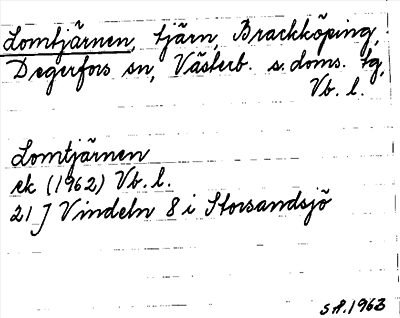 Lomtjärnen, tjärn, Brackköping.
Degerfors sn, Västerb. s. doms. tg,
Vb. l.
Lomtjärnen
ek (1962) Vb. l.
21 J Vindeln 8 i Storsandsjö
SA. 1963